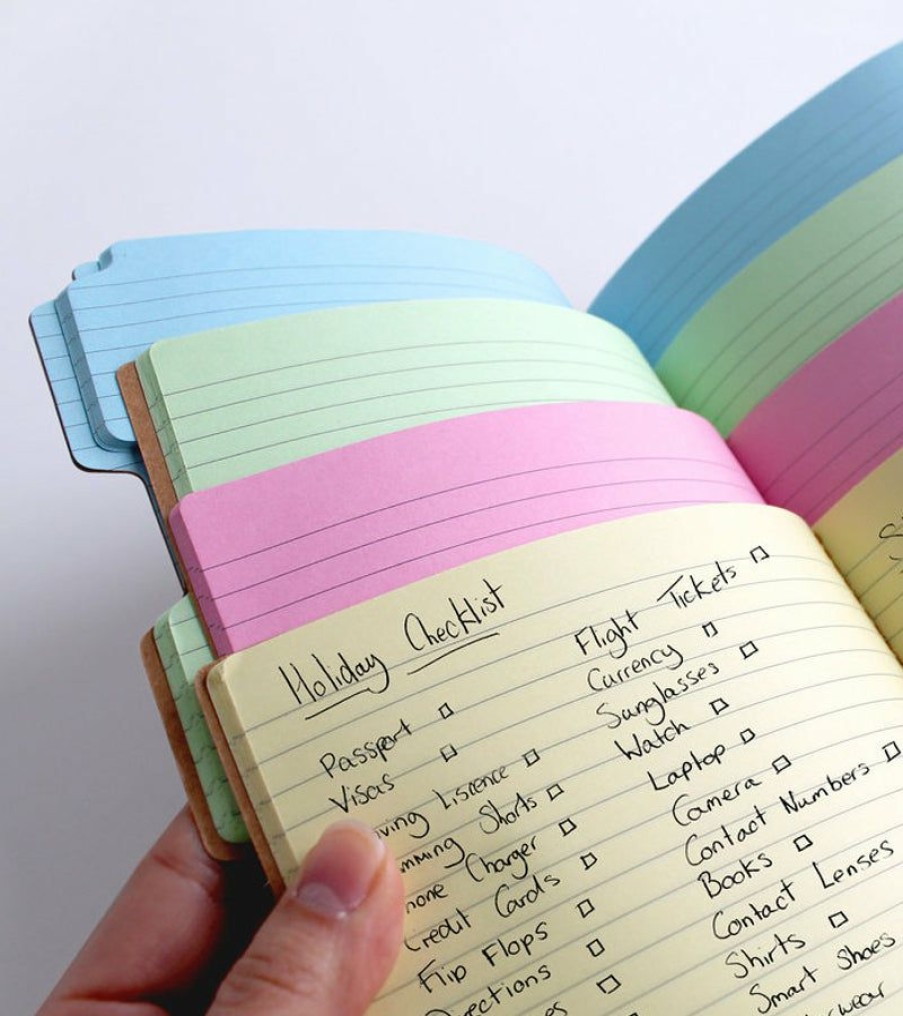 Holiday Checklist
Passport
Visas
ving Liscence
mming Shorts
hone Charger
Credit Cards
Flip Flops
ections
es
Flight Tickets
Currency
Sunglasses
Watch
Laptop
Camera
Contact Numbers
Books
Contact Lenses
Shirts
Smart Shoes
rwear